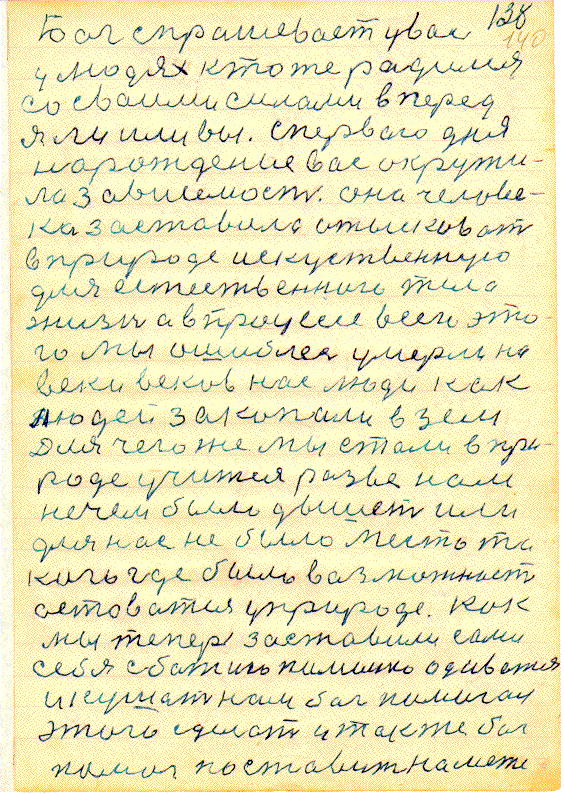 138
140
Бог спрашевает увас
улюдях ктоже радился
со сваими силами вперед
я ли или вы. Сперваго дня
нарождение вас окружи-
ла зависемост. она челове-
ка заставила отысковат
вприроде искуственную
для естественного тела
жизн авпроцессе всего это-
го мы ошиблся умерли на
веки веков нас люди как
людей закопали взем
Для чегоже мы стали впри-
роде учится разве нам
нечем было дышет или
для нас не было месть та
кого где было возможност
остоватя уприроде. Как
мы тепер заставили сами
себя сбажиго помошю одиватя
икушат нам бог помогал
этого сделат итакже бог
помог поставит наместе